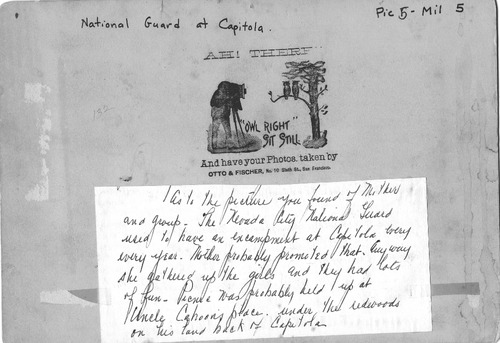 National Guard at Capitola.
Pic 5 - Mil 5
AH! THERE
"OWL RIGHT"
SIT STILL
And have your Photos. taken by
OTTO & FISCHER, No. 10 Sixth St., San Francisco.
As to the picture you found of Mother
and group. The Nevada City National Guard
used to have an encampment at Capitola every
every year. Mother probably promoted that. Anyway
she gathered up the girls and they had lots
of fun. Picnic was probably held up at
Uncle place. under the redwoods
on his land back of Capitola